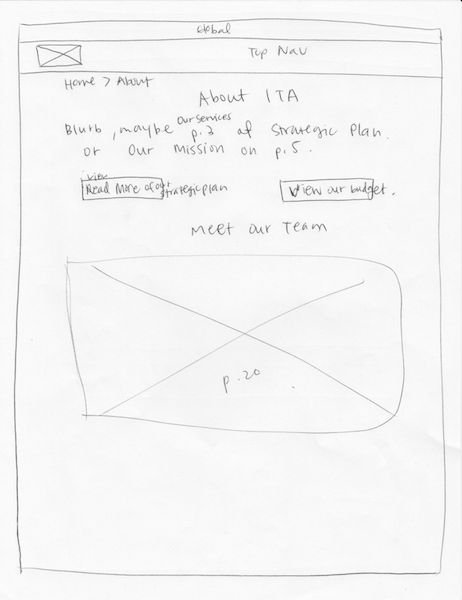 Global
Top Nav
Home > About
About ITA
Our Services
Blurb, maybe p.2 of Strategic Plan.
or Our Mission on p.5.
view
Read More of our strategic plan
View our budget.
Meet Our Team
p.20